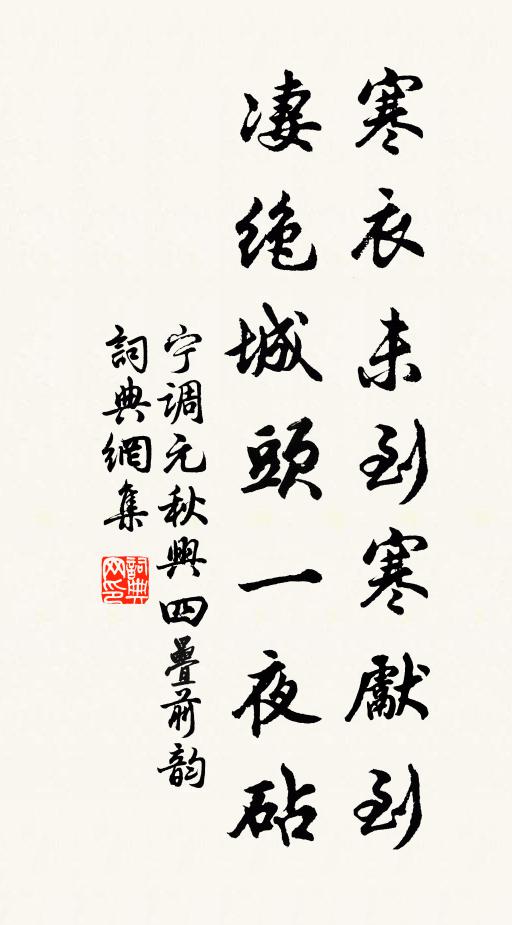 寒衣未到寒獻到
凄绝城頭一夜砧
宁調元秋興四疊前韵
詞典網集
詞典网印